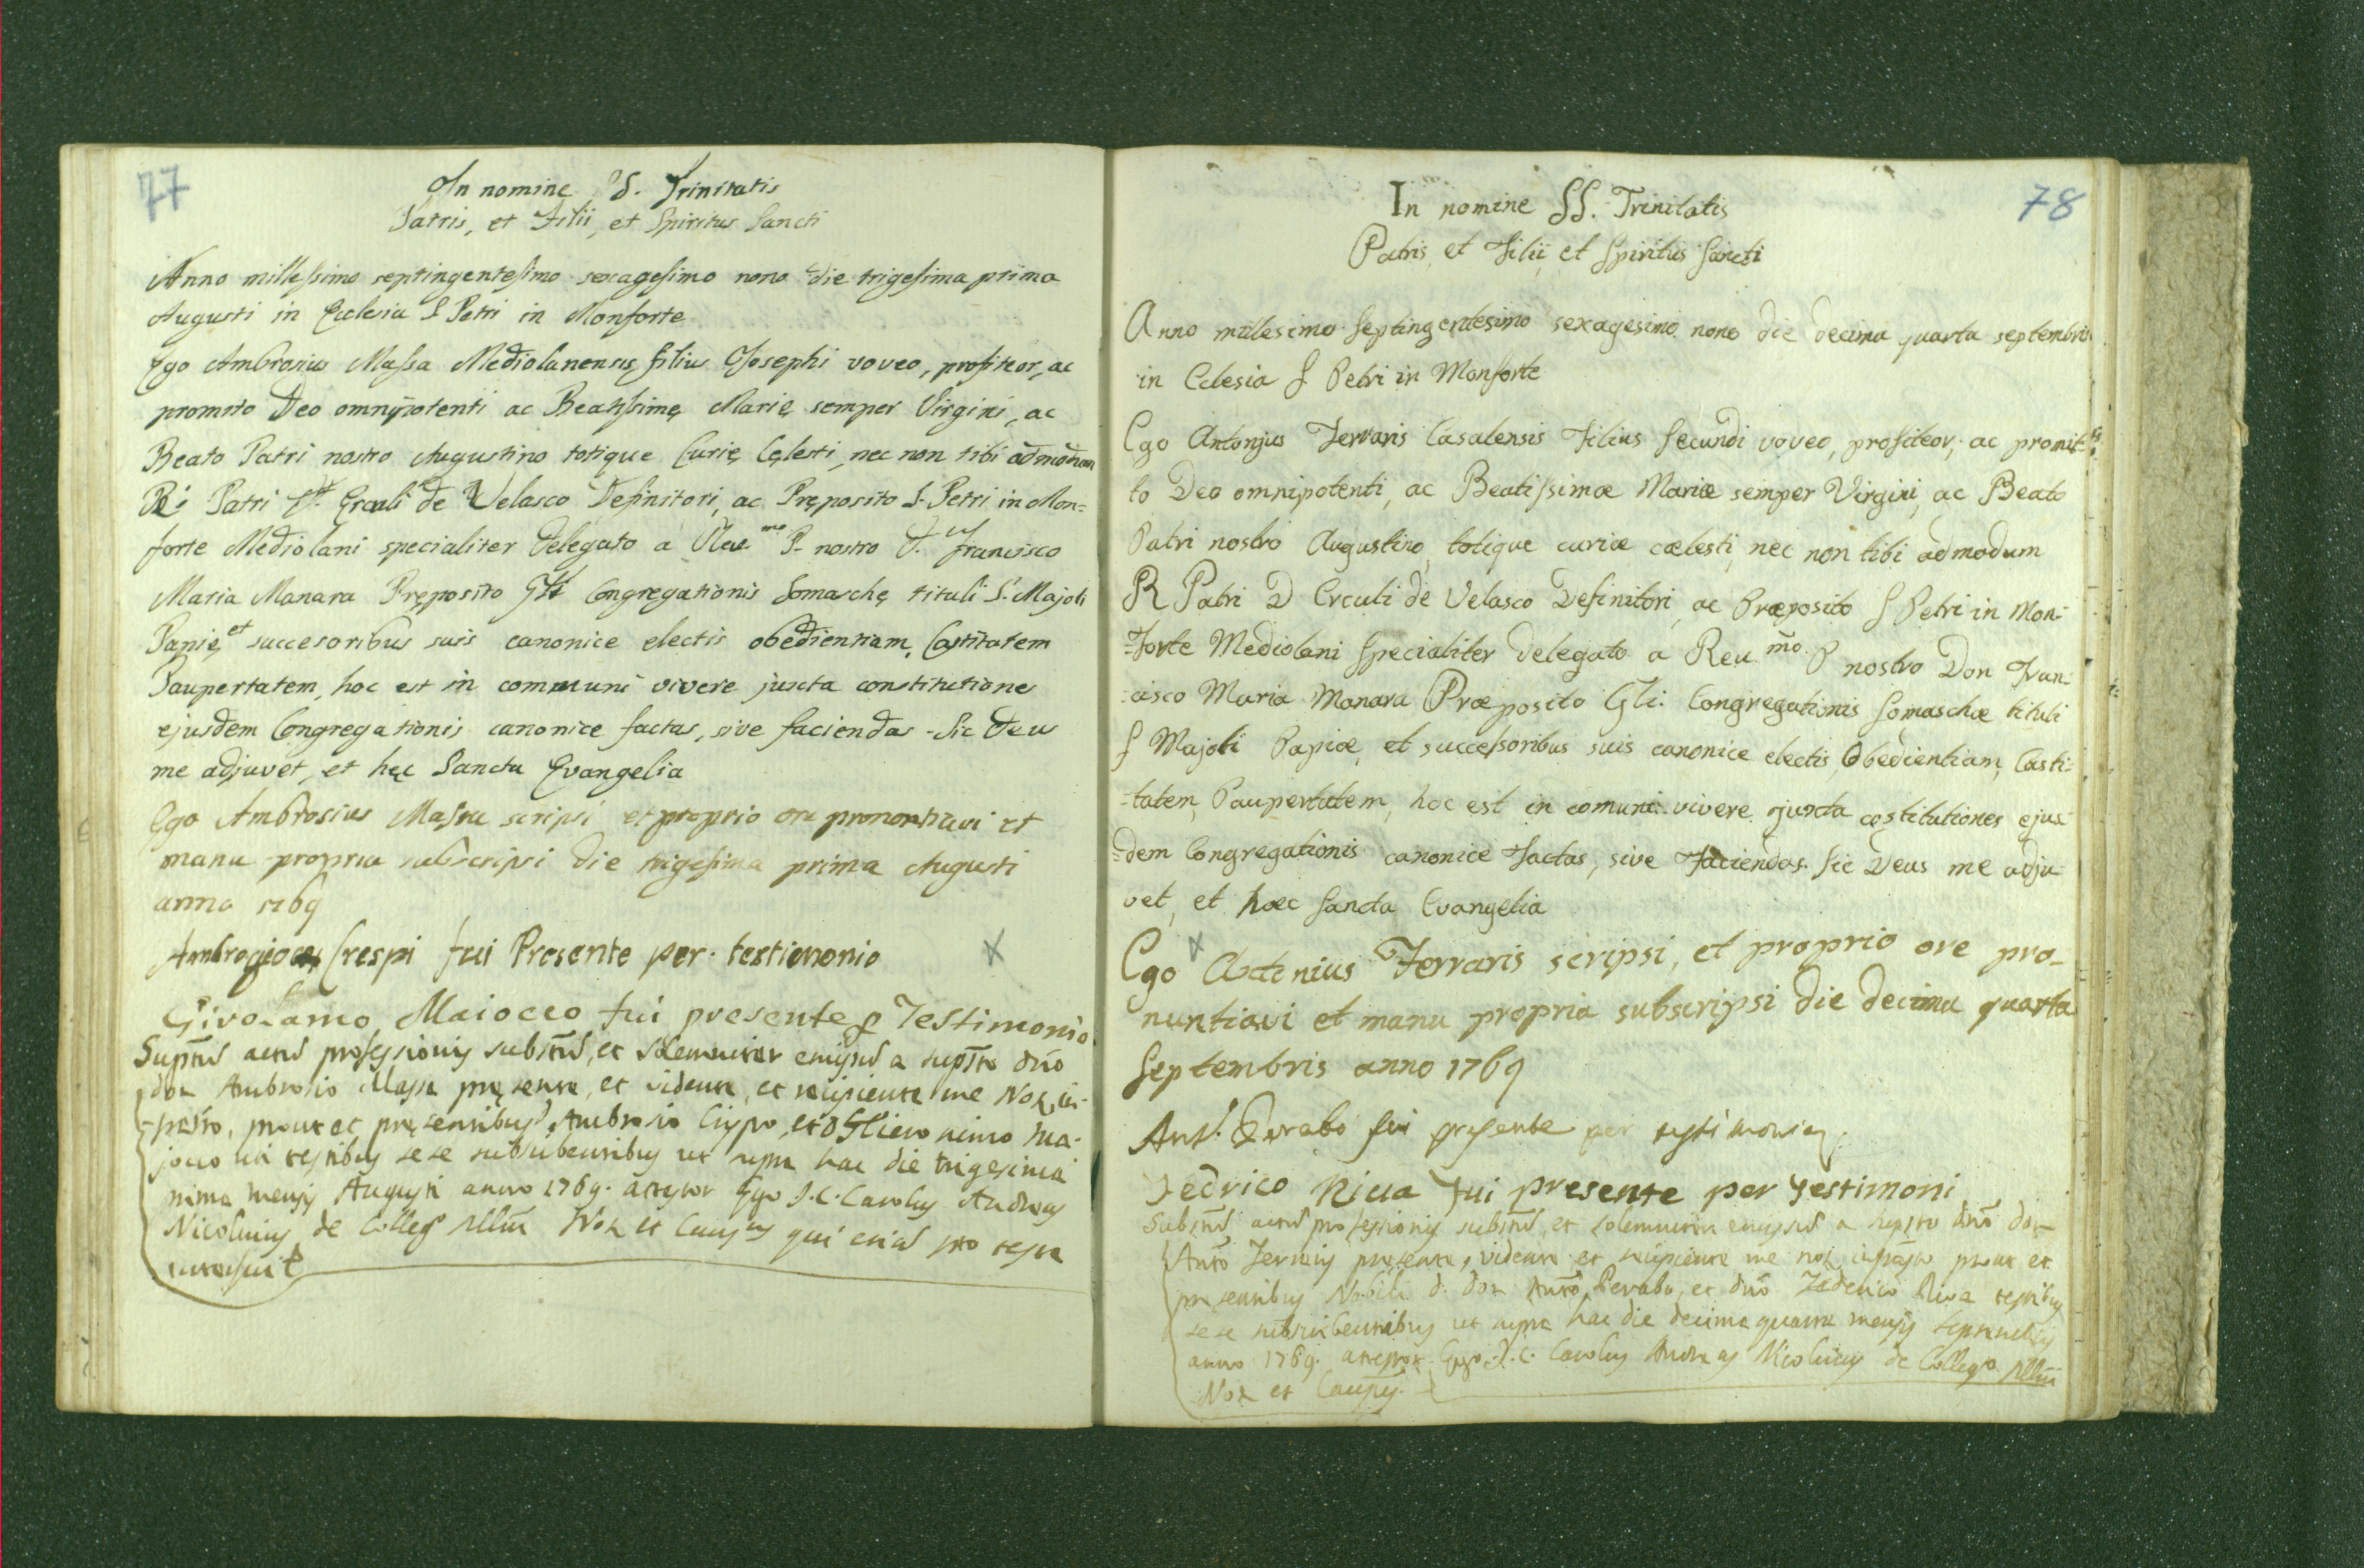 77
In nomine S. Trinitatis
Patris, et Filii, et Spiritus Sancti
Anno millessimo septingentesimo sexagesimo nono die trigesima prima
Augusti in Ecclesia S Petri in Monforte
Ego Ambrosius Massa Mediolanensis filius Josephi voveo, profiteor, ac
promitto Deo omnipotenti ac Beatissimę Marię semper Virgini, ac
Beato Patri nostro Augustino totique Curię Cęlesti, nec non tibi admodum
R. Patri D. Erculi de Velasco Definitori, ac Pręposito S. Petri in Mon=
forte Mediolani specialiter delegato a Reu.mo P. nostro D. Francisco
Maria Manara Pręposito Gli Congregationis Somaschę tituli S. Majoli
Papię, et succesoribus suis canonice electis obedientiam, Castitatem
Paupertatem, hoc est in communi vivere juxta constitutiones
ejusdem Congregationis canonice factas, sive faciendas. Sic Deus
me adjuvet, et hęc Sancta Evangelia
Ego Ambrosius Massa scripsi et proprio ore pronontiavi et
manu propria subscripsi die trigesima prima Augusti
anno 1769
Ambrogio Crespi fui Presente per testimonio
Girolamo Maiocco fui presente p Testimonio
actus professionis et a
don Ambrosio Massa pręsente, et vidente, et recipiente me Not
prout et pręsentibus Ambrosio Crispo, et D Hieronimo Ma-
joco uti testibus sese subscribentibus ut supra hac die trigesima
prima mensis Augusti anno 1769. attestor Ego J.C. Carolus Andreas
Nicolinus de Colleg Mlni Not et qui pro
78
In nomine SS. Trinitatis
Patris, et Filii, et Spiritus Sancti
Anno millesimo septingentesimo sexagesimo nono die decima quarta septembris
in Eclesia S Petri in Monforte
Ego Antonjus Ferraris Casalensis Filius Secundi voveo, profiteor, ac promit-
to Deo omnipotenti, ac Beatissimæ Mariæ semper Virgini, ac Beato
Patri nostro Augustino, totique curiæ cælesti, nec non tibi admodum
R Patri D Erculi de Velasco Definitori, ac Præposito S Petri in Mon-
=forte Mediolani Specialiter delegato a Reu.mo P nostro Don Fran-
cisco Maria Manara Præposito Gli: Congregationis Somaschæ tituli
S Majoli Papiæ, et successoribus suis canonice electis, Obedientiam, Casti=
=tatem, Paupertatem, hoc est in comuni vivere juxta costitutiones ejus
=dem Congregationis canonice Factas, sive Faciendas. Sic Deus me adju
vet, et hæc Sancta Evangelia
Ego Antonius Ferraris scripsi, et proprio ore pro-
nuntiavi et manu propria subscripsi die decima quarta
Septembris anno 1769
Ant. Perabò fui presente per testimonio
Fedrico Riua Fui presente per testimoni
actus professionis et a don
presente, vidente et recipiente me not prout et
presentibus Nobili d. don Perabò, et Federico Riva testibus
sese subscribentibus ut supra hac die decima quarta mensis septembris
anno 1769. attestor Ego J.C. Carolus Andreas Nicolinus de Collegio Mlni
Not et